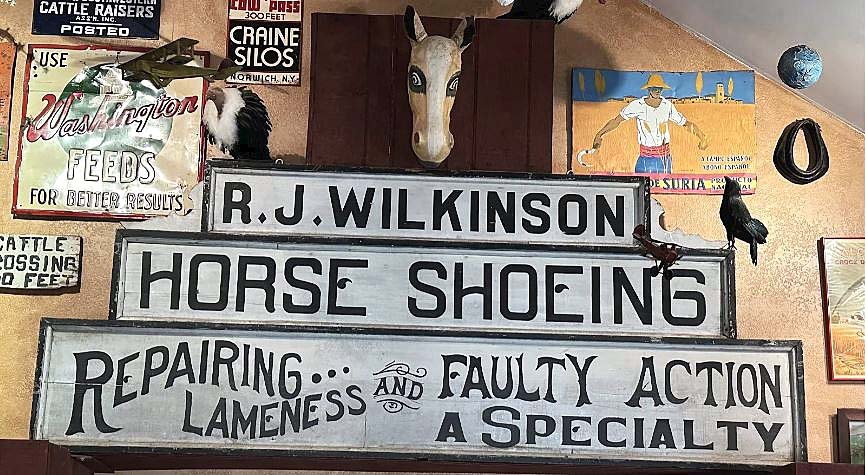 CATTLE RAISERS
ASS'N. INC.
POSTED
COW PASS
300 FEET
CRAINE
SILOS
NORWICH, N.Y.
USE
Washington
FEEDS
FOR BETTER RESULTS
A CAMPO ESPAÑOL
ABONO ESPAÑOL
DE SURIA PRODUCTO
NACIONAL
CATTLE
CROSSING
FEET
R.J.WILKINSON
HORSE SHOEING
REPAIRING... LAMENESS AND FAULTY ACTION
A SPECIALTY